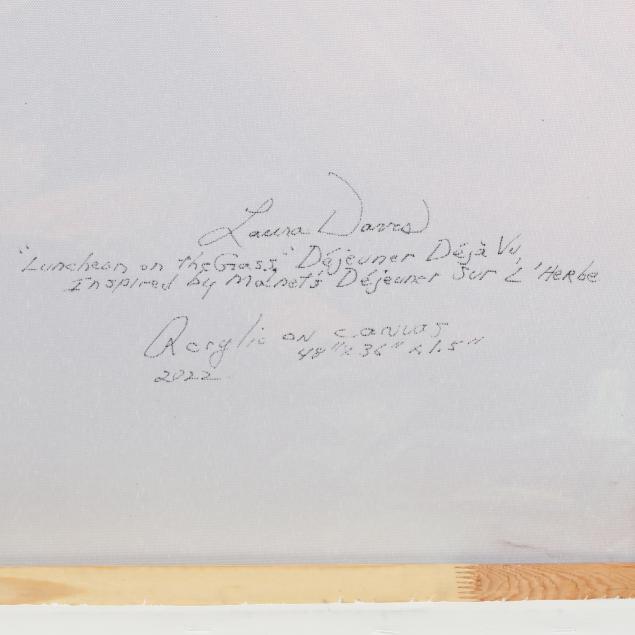 Laura Davis
"Luncheon on the Grass," Déjeuner Déjà Vu,
Inspired by Manet's Déjeuner Sur L'Herbe
Acrylic on canvas
48" x 36" x 1.5"
2022